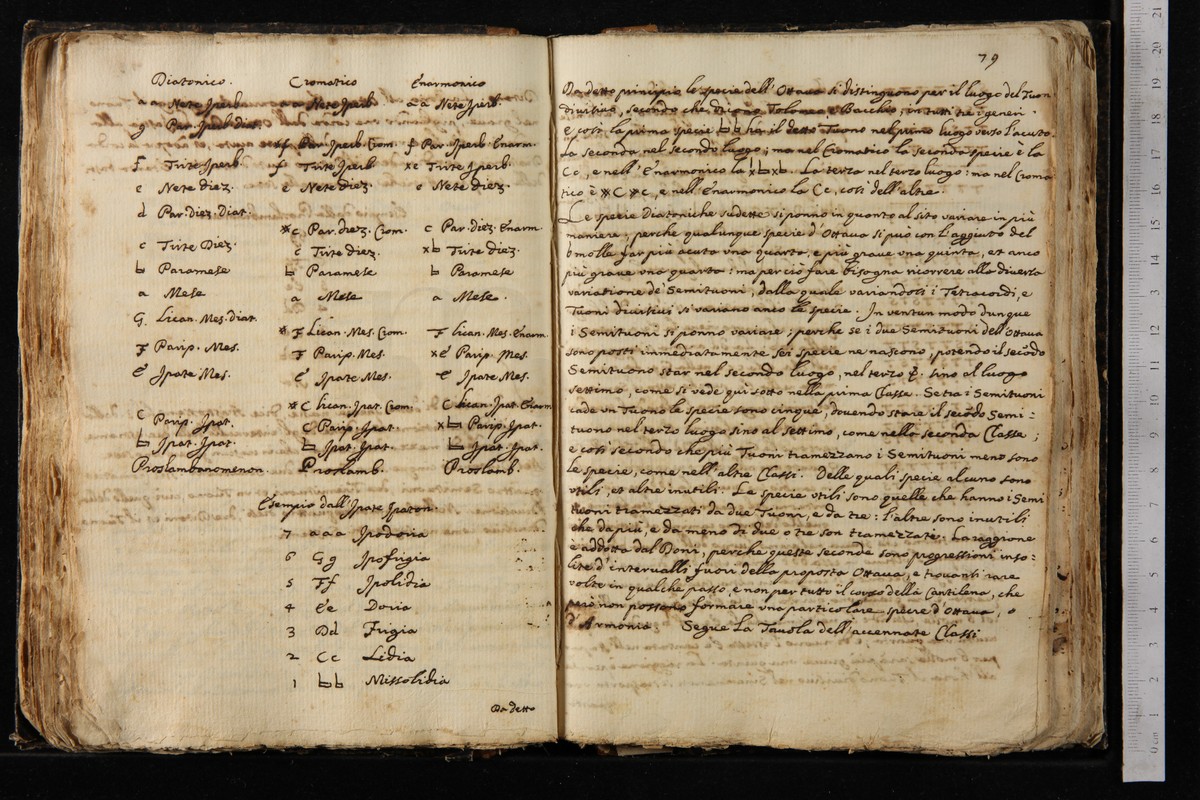 Diatonico. Cromatico Enarmonico
aa Nete Iperb. aa Nete Iperb. aa Nete Iperb.
g Par. Iperb. Diat.
#f Par. Iperb. Crom. f Par. Iperb. Enarm.
f Trite Iperb. f Trite Iperb xe Trite Iperb.
e Nete diez. e Nete diez. e Nete diez.
d Par. Diez. Diat.
#c Par. diez. Crom. c Par. diez. Enarm.
c Trite Diez. c Trite diez. x♭ Trite diez.
♭ Paramese ♭ Paramese ♭ Paramese
a Mese a Mese a Mese.
G. Lican. Mes. diat.
#F Lican. Mes. Crom. F lican. Mes. Enarm.
F Parip. Mes. F Parip. Mes. xE Parip. Mes.
E Ipate Mes. E Ipate Mes. E Ipate Mes.
#C lican. Ipat. Crom. C lican. Ipat. Enarm
C Parip. Ipat. C Parip. Ipat. x♭ Parip. Ipat.
♭ Ipat. Ipat. ♭ Ipat. Ipat. ♭ Ipat. Ipat.
Proslambanomenon. Proslamb. Proslamb.
Esempio dall'Ipate Ipaton.
7 aaa Ipodoria
6 Gg Ipofrigia
5 Ff Ipolidia
4 Ee Doria
3 Dd Frigia
2 Cc Lidia
1 ♭♭ Missolidia
Da detto
79
Da detto principio le specie dell'Ottava si distinguono per il luogo del Tuon
divisivo, secondo che Tolomeo, e Bacchio, in tutti trè i generi.
E così la prima specie ♭♭ hà il detto Tuono nel primo luogo verso l'acuto.
La seconda nel secondo luogo; ma nel Cromatico la seconda specie è la
Cc, e nell'Enarmonico la x♭x♭. La terza nel terzo luogo: ma nel Croma
tico è #C #c, e nell'Enarmonico la Cc, così dell'altre.
Le specie Diatoniche sudette si ponno in quanto al sito variare in più
maniere; perche qualunque specie d'Ottava si può con l'aggiuto del
b molle far più acuta vna quarta, e più graue vna quinta, et anco
più graue vna quarta: ma per ciò fare bisogna ricorrere alla diversa
variatione de' Semituoni, dalla quale variandosi i Tetracordi, e
Tuoni divisivi si variano anco le specie. In ventun modo dunque
i Semituoni si ponno variare; perche se i due Semituoni dell'Ottaua
sono posti immediatamente sei specie ne nascono, potendo il secōdo
Semituono star nel secondo luogo, nel terzo &. sino al luogo
settimo, come si vede quì sotto nella prima Classe. Se tra i Semituoni
cade vn Tuono le specie sono cinque, douendo stare il secōdo Semi=
tuono nel terzo luogo sino al settimo, come nella seconda Classe;
e così secondo che più Tuoni tramezzano i Semituoni meno sono
le specie, come nell'altre Classi. Delle quali specie alcune sono
vtili, et altre inutili. Le specie vtili sono quelle che hanno i Semi
tuoni tramezzati da due Tuoni, e da tre: l'altre sono inutili
che da più, e da meno di due o tre son tramezzate. La raggione
è addotta dal Doni, perche queste seconde sono progressioni inso=
lite d'intervalli fuori della proposta Ottaua, e trouanti rare
volte in qualche passo, e non per tutto il corso della Cantilena, che
però non possono formare vna particolare specie d'Ottaua, o
d'Armonia Segue La Tauola dell'accennate Classi